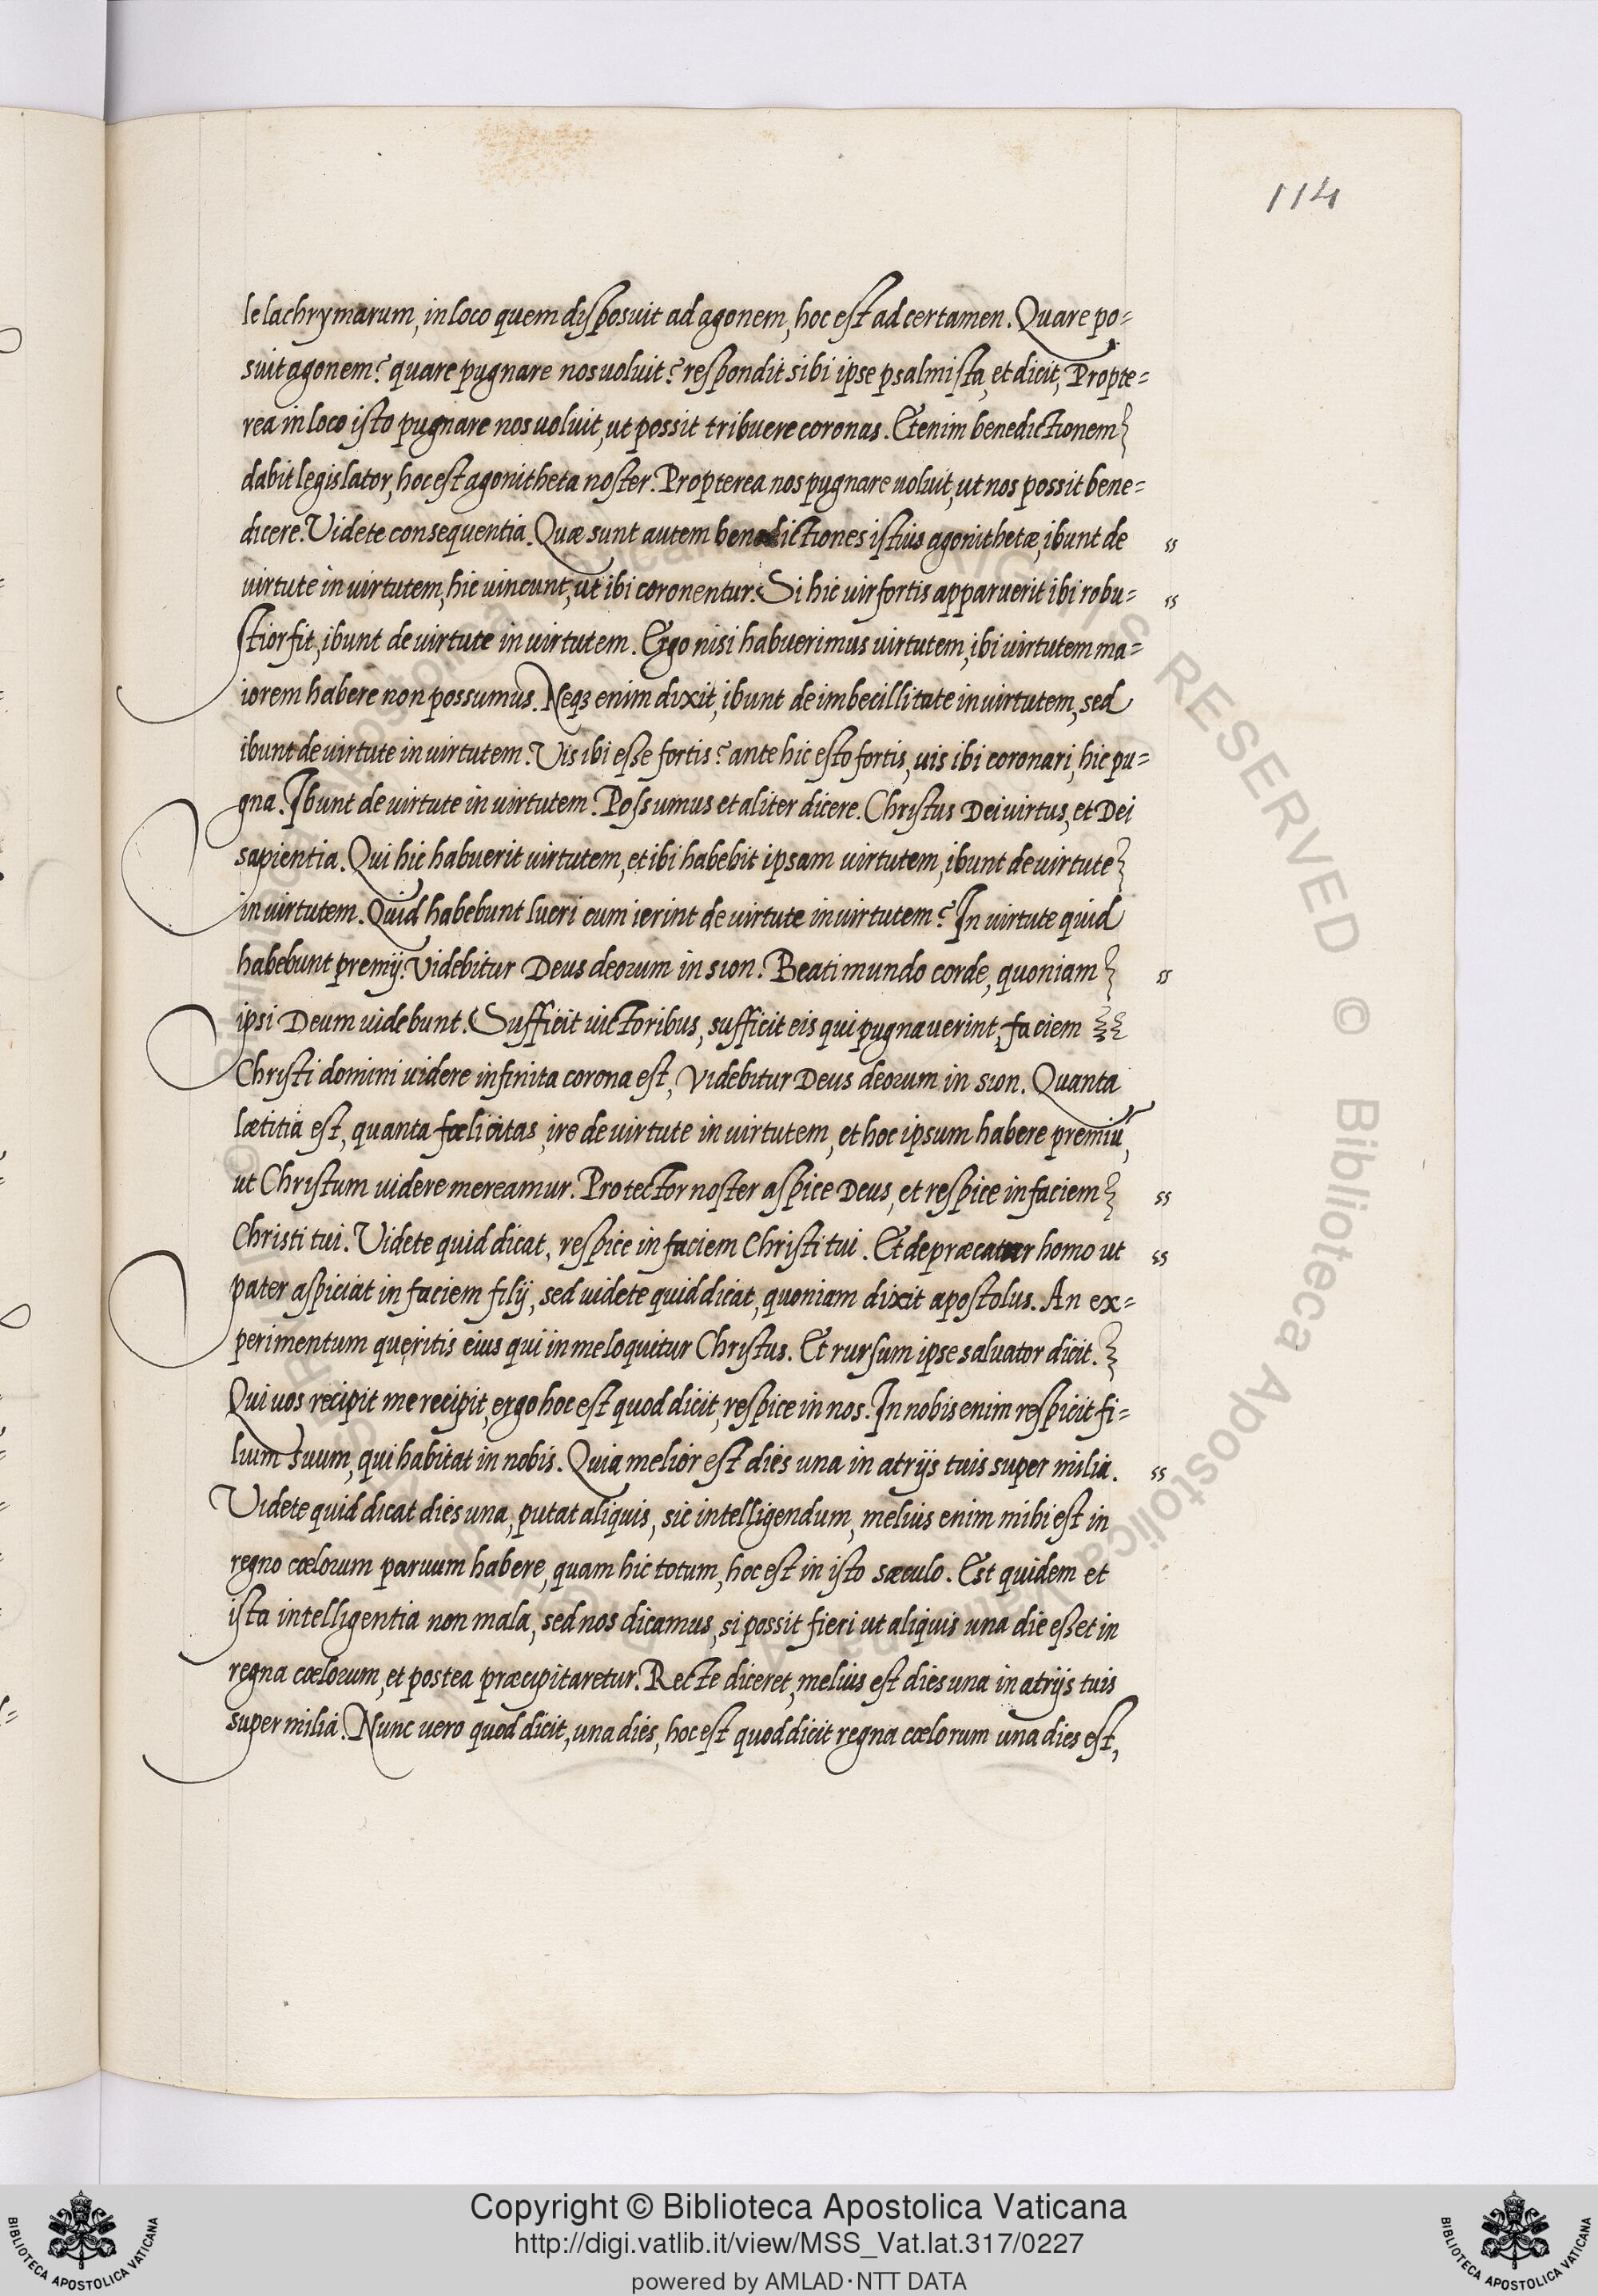 114
le lachrymarum, in loco quem disposuit ad agonem, hoc est ad certamen. Quare po=
suit agonem? quare pugnare nos uoluit? respondit sibi ipse psalmista, et dicit, Propte=
rea in loco isto pugnare nos uoluit, ut possit tribuere coronas. Etenim benedictionem
dabit legislator, hoc est agonitheta noster. Propterea nos pugnare uoluit, ut nos possit bene=
dicere. Videte consequentia. Quæ sunt autem benedictiones istius agonithetæ, ibunt de
uirtute in uirtutem, hic uincunt, ut ibi coronentur. Si hic uir fortis apparuerit ibi robu=
stior fit, ibunt de uirtute in uirtutem. Ergo nisi habuerimus uirtutem, ibi uirtutem ma=
iorem habere non possumus. Neqȝ enim dixit, ibunt de imbecillitate in uirtutem, sed
ibunt de uirtute in uirtutem. Vis ibi esse fortis? ante hic esto fortis, uis ibi coronari, hic pu=
gna. Ibunt de uirtute in uirtutem. Possumus et aliter dicere. Christus Dei uirtus, et Dei
sapientia. Qui hic habuerit uirtutem, et ibi habebit ipsam uirtutem, ibunt de uirtute
in uirtutem. Quid habebunt lucri cum ierint de uirtute in uirtutem? In uirtute quid
habebunt premij. Videbitur Deus deorum in sion. Beati mundo corde, quoniam
ipsi Deum uidebunt. Sufficit uictoribus, sufficit eis qui pugnauerint, faciem
Christi domini uidere infinita corona est, Videbitur Deus deorum in sion. Quanta
lætitia est, quanta fœlicitas, ire de uirtute in uirtutem, et hoc ipsum habere premiũ,
ut Christum uidere mereamur. Protector noster aspice Deus, et respice in faciem
Christi tui. Videte quid dicat, respice in faciem Christi tui. Et depræcatur homo ut
pater aspiciat in faciem filij, sed uidete quid dicat, quoniam dixit apostolus. An ex=
perimentum quęritis eius qui in me loquitur Christus. Et rursum ipse saluator dicit.
Qui uos recipit me recipit, ergo hoc est quod dicit, respice in nos. In nobis enim respicit fi=
lium suum, qui habitat in nobis. Quia melior est dies una in atrijs tuis super milia.
Videte quid dicat dies una, putat aliquis, sic intelligendum, melius enim mihi est in
regno cœlorum paruum habere, quam hic totum, hoc est in isto sæculo. Est quidem et
ista intelligentia non mala, sed nos dicamus, si possit fieri ut aliquis una die esset in
regna cœlorum, et postea præcipitaretur. Recte diceret, melius est dies una in atrijs tuis
super milia. Nunc uero quod dicit, una dies, hoc est quod dicit regna cœlorum una dies est,
Copyright © Biblioteca Apostolica Vaticana
http://digi.vatlib.it/view/MSS_Vat.lat.317/0227
powered by AMLAD·NTT DATA
BIBLIOTECA APOSTOLICA VATICANA
BIBLIOTECA APOSTOLICA VATICANA